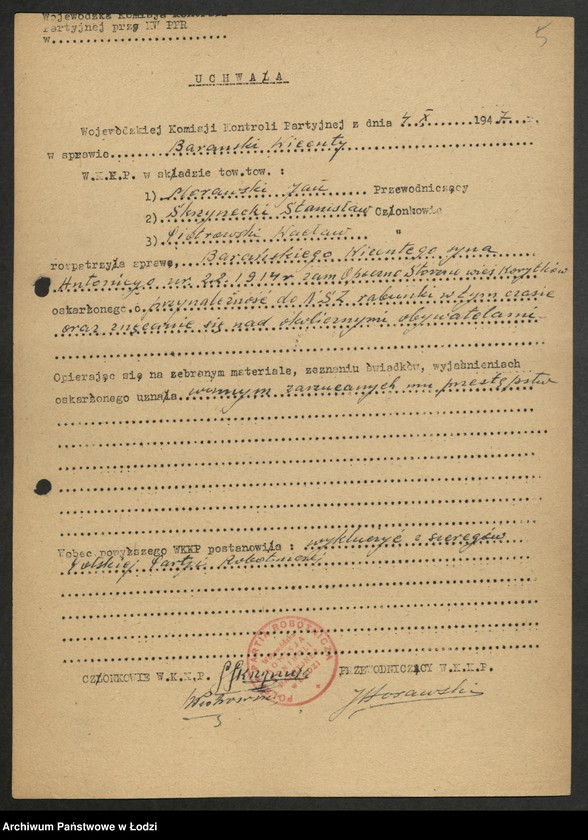 Wojewódzka Komisja Kontroli
Partyjnej przy KW PPR
w
5
UCHWAŁA
Wojewódzkiej Komisji Kontroli Partyjnej z dnia 4.X. 1947
w sprawie Barański Wicenty
W.K.K.P. w składzie tow.tow. :
1) Morawski Jan Przewodniczący
2) Skrzynecki Stanisław Członkowie
3) Piotrowski Wacław "
rozpatrzyła sprawę, Barańskiego Wicentego syna
Antoniego ur. 2.2.1914 r zam Opoczno wieś Korytków
oskarżonego o przynależność do N.S.Z. rabunki w tym czasie
oraz znęcanie się nad okolicznymi obywatelami
Opierając się na zebranym materiale, zeznaniu świadków, wyjaśnieniach
oskarżonego uznała winnym zarzucanych mu przestępstw
Wobec powyższego WKKP postanowiła : wykluczyć z szeregów
Polskiej Partji Robotniczej
CZŁONKOWIE W.K.K.P.
PRZEWODNICZĄCY W.K.K.P.
JMorawski
Archiwum Państwowe w Łodzi